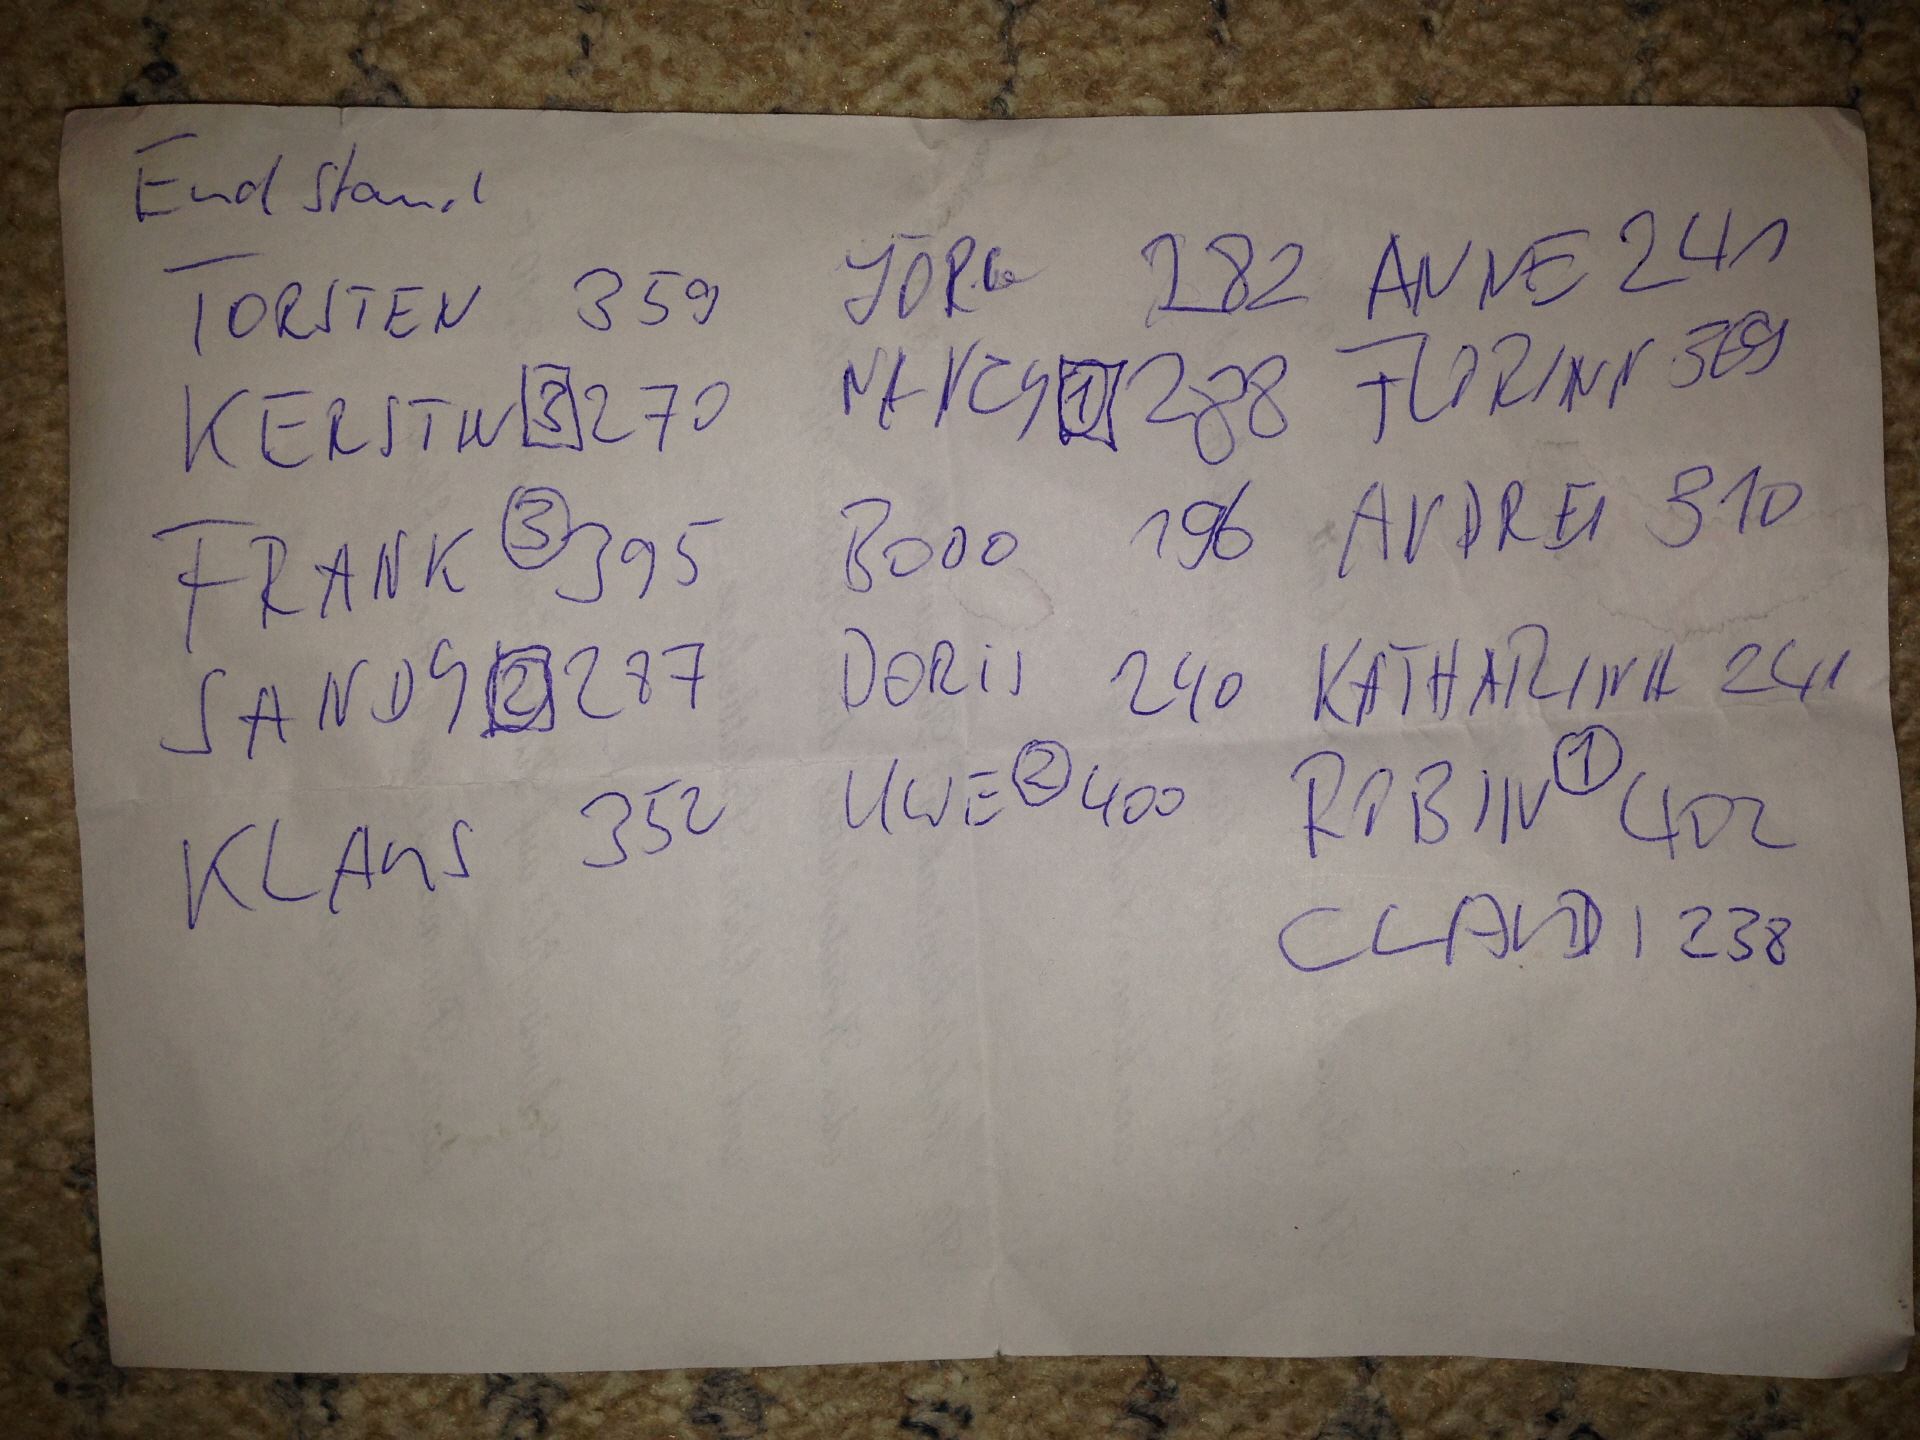 Endstand
TORSTEN 359 JÖRG 282 ANNE 241
KERSTIN 3 270 NANCY 1 288 FLORIAN 369
FRANK 3 395 BODO 196 ANDREI 310
SANDY 2 287 DORIS 240 KATHARINA 241
KLAUS 352 UWE 2 400 ROBIN 1 402
CLAUDI 238